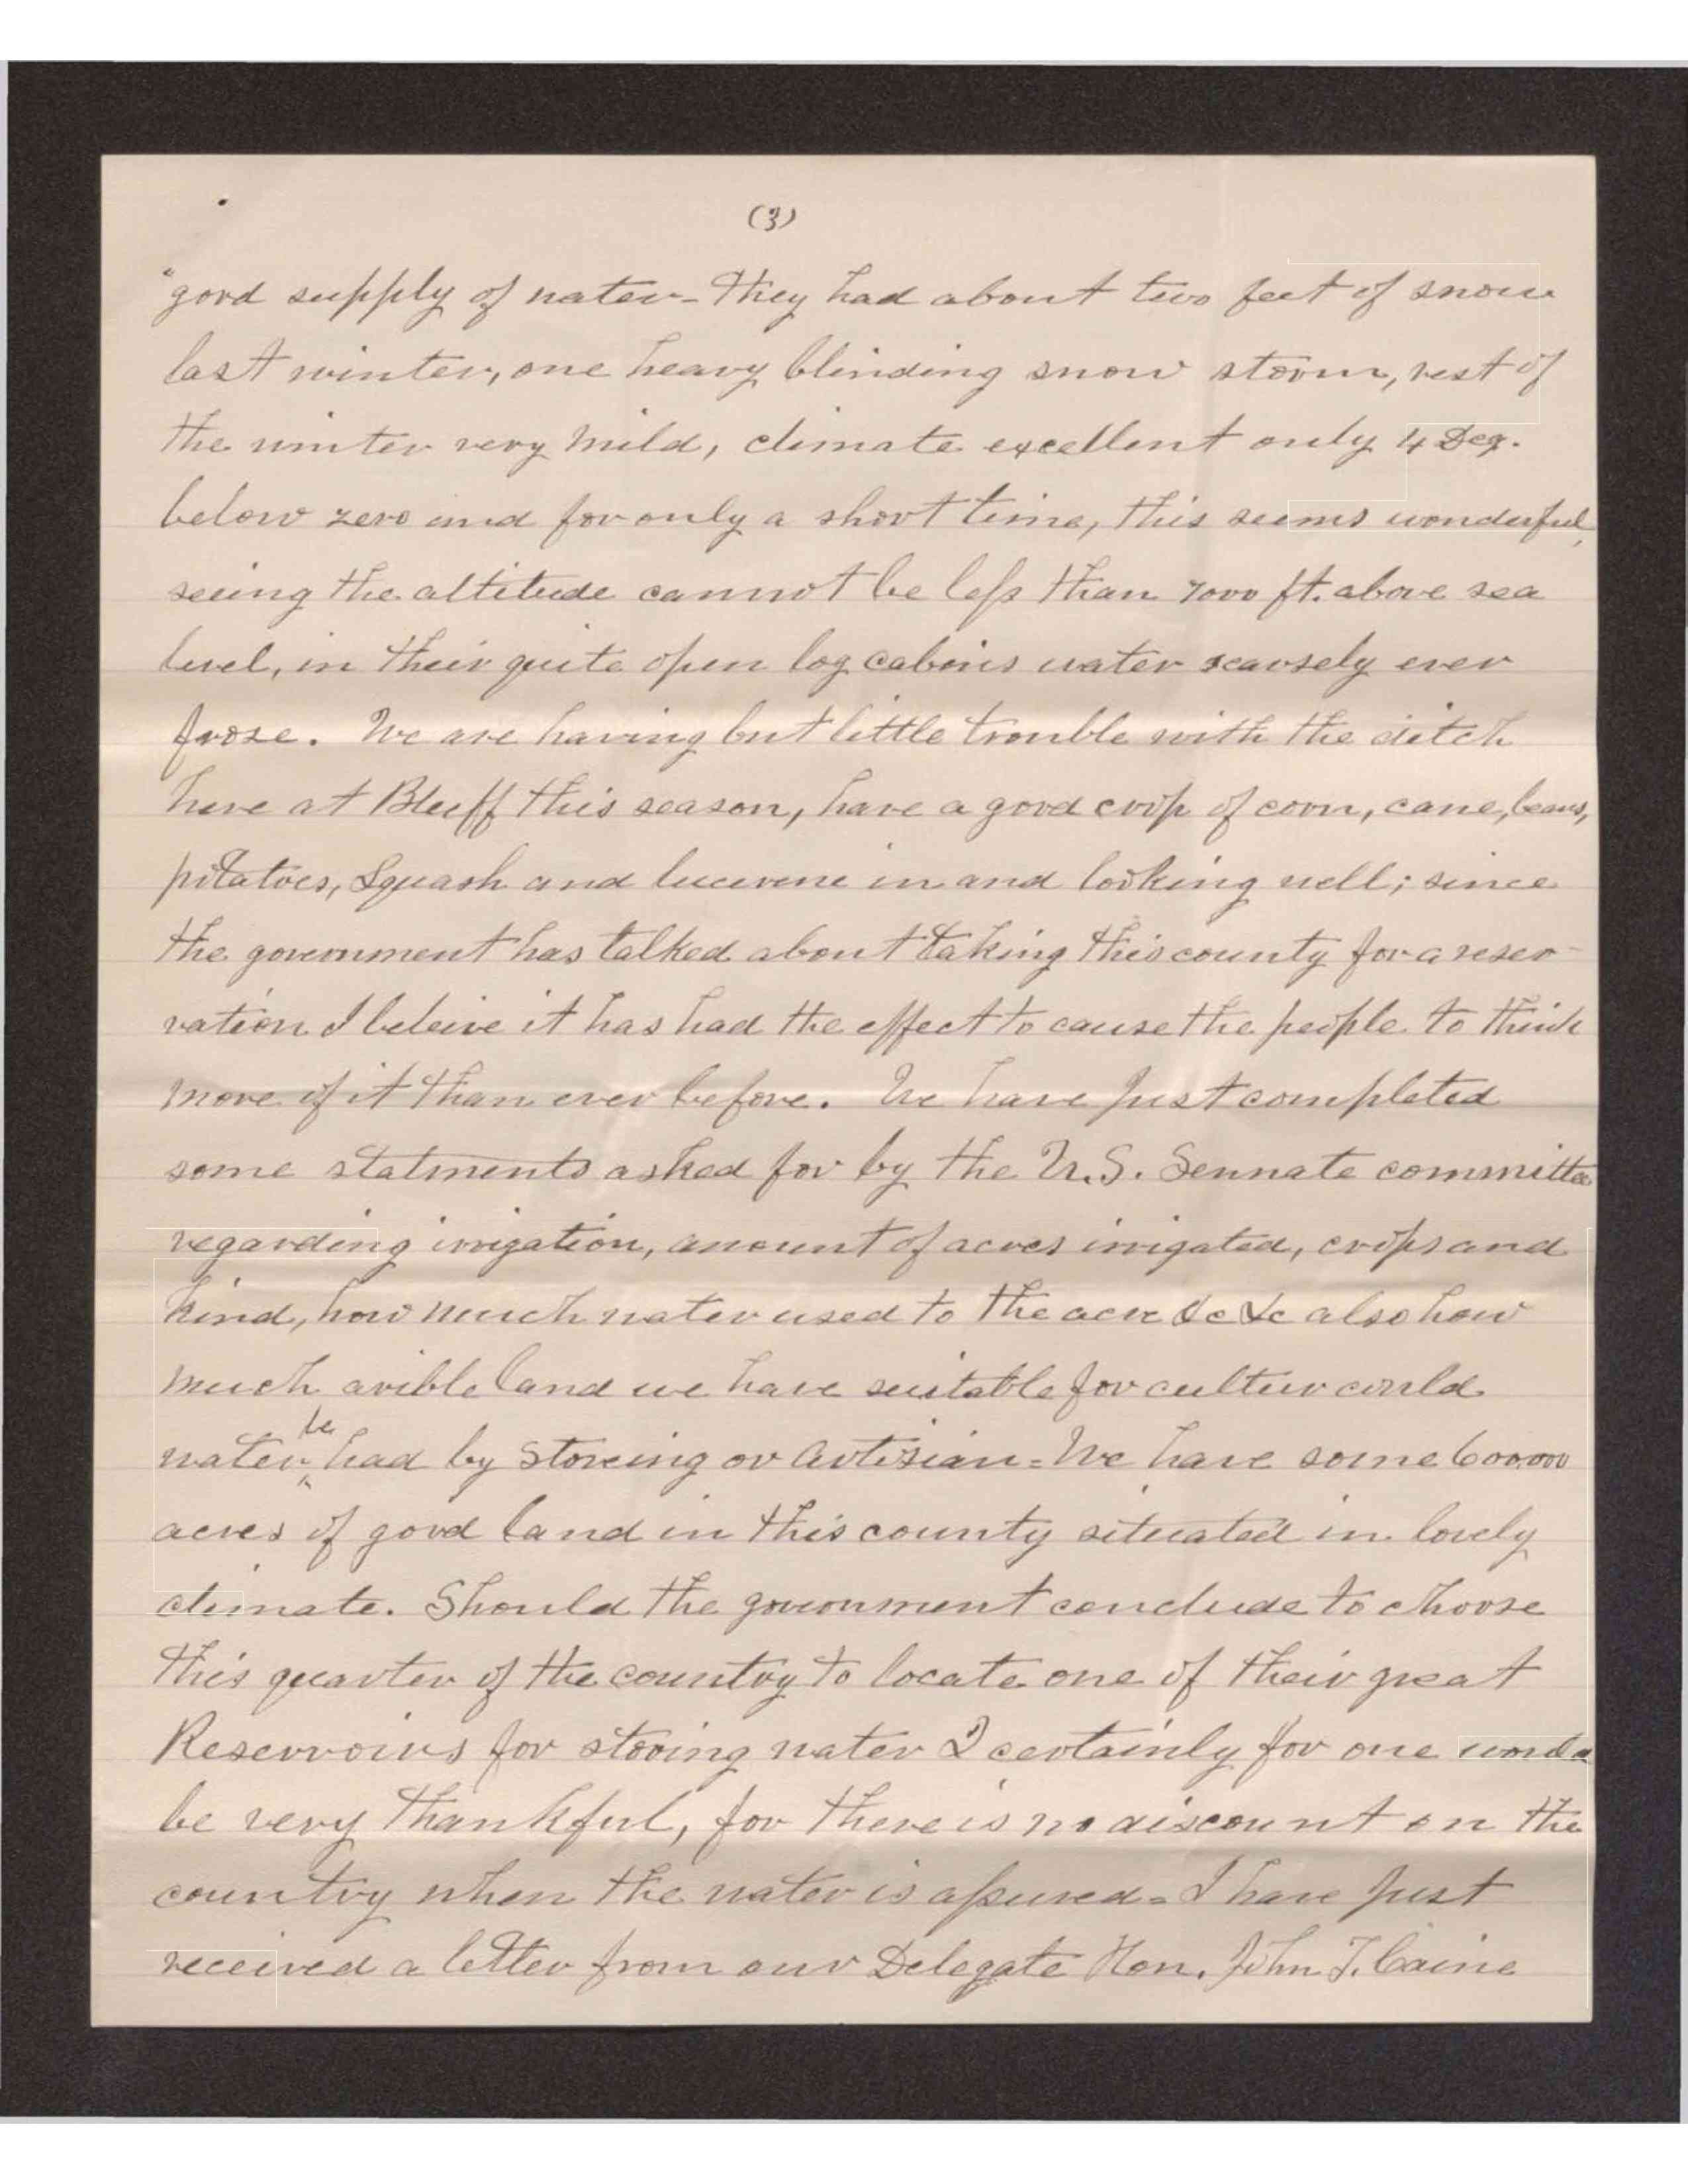 (3)
"good supply of water - they had about two feet of snow
last winter, one heavy blinding snow storm, rest of
the winter very mild, climate excellent only 4 Deg.
below zero and for only a short time, this seems wonderful,
seeing the altitude cannot be less than 7000 ft. above sea
level, in their quite open log cabins water scarsely ever
frose. We are having but little trouble with the ditch
here at Bluff this season, have a good crop of corn, cane, beans,
potatoes, Squash and lucerene in and looking well; since
the government has talked about taking this county for a reser-
vation I beleive it has had the effect to cause the people to think
more of it than ever before. We have just completed
some statments asked for by the U.S. Sennate committee
regarding irrigation, amount of acres irrigated, crops and
kind, how much water used to the acre &c &c also how
much arible land we have suitable for cultur could
water be had by Storeing or Artisian - We have some 600.000
acres of good land in this county situated in lovely
climate. Should the government conclude to choose
this quarter of the country to locate one of their great
Reservroirs for storing water I certainly for one would
be very thankful, for there is no discount on the
country when the water is assured - I have just
received a letter from our Delegate Hon. John T. Caine